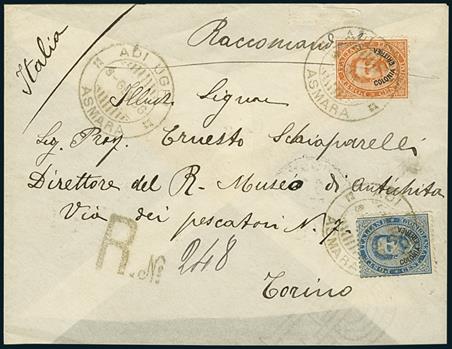 Italia
Raccomand
ADI UGRI
ASMARA
COLONIA ERITREA
Illustr. Signor
Sig. Prof. Ernesto Schiaparelli
Direttore del R. Museo di Antichità
Via dei pescatori N.
R. No 248
COLONIA ERITREA
Torino